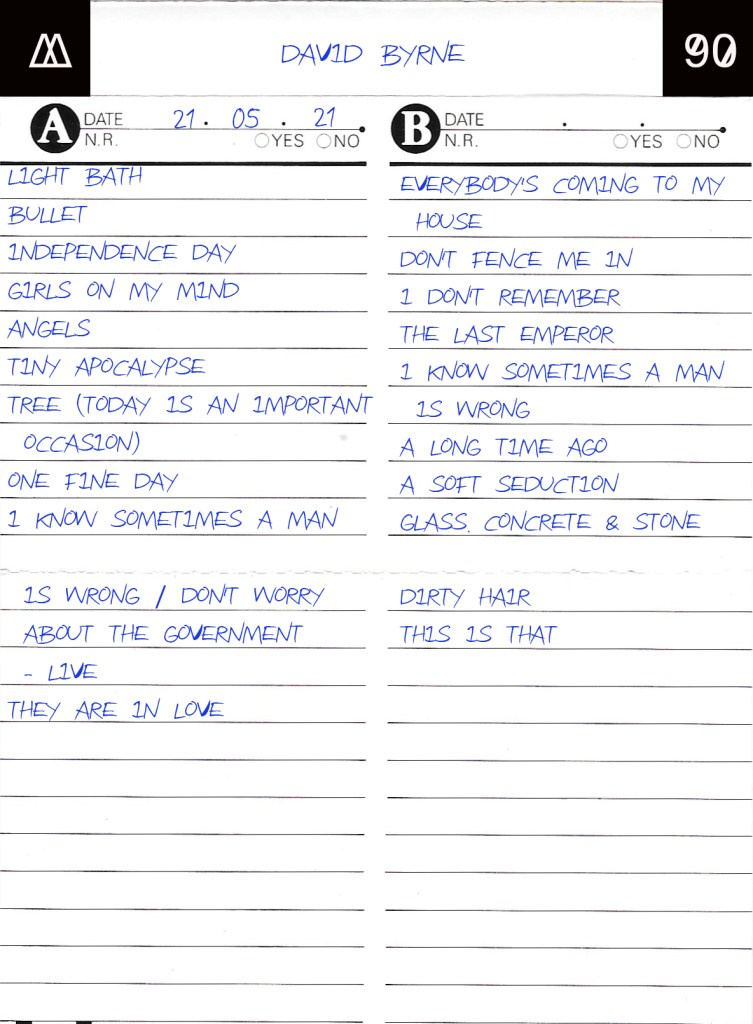 DAVID BYRNE
90
A DATE 21. 05. 21
N.R. YES NO
LIGHT BATH
BULLET
INDEPENDENCE DAY
GIRLS ON MY MIND
ANGELS
TINY APOCALYPSE
TREE (TODAY IS AN IMPORTANT
OCCASION)
ONE FINE DAY
I KNOW SOMETIMES A MAN
IS WRONG / DON'T WORRY
ABOUT THE GOVERNMENT
- LIVE
THEY ARE IN LOVE
B DATE . .
N.R. YES NO
EVERYBODY'S COMING TO MY
HOUSE
DON'T FENCE ME IN
I DON'T REMEMBER
THE LAST EMPEROR
I KNOW SOMETIMES A MAN
IS WRONG
A LONG TIME AGO
A SOFT SEDUCTION
GLASS, CONCRETE & STONE
DIRTY HAIR
THIS IS THAT